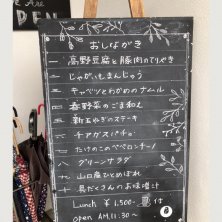 We Are
PEN
おしながき
一 高野豆腐と豚肉のてりやき
二 じゃがいもまんじゅう
三 キャベツとわかめのナムル
四 春野菜のごま和え
五 新玉ねぎのステーキ
六
七 たけのこのペペロンチーノ
八 グリーンサラダ
九 山口産ひとめぼれ
十 具だくさんのお味噌汁
Lunch ¥1,500- 付
open AM.11:30~